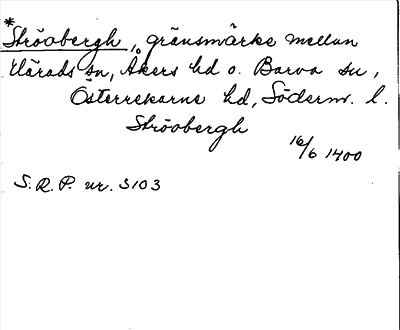 *
Ströobergh, gränsmärke mellan
Härads sn, Åkers hd o. Barva sn,
Österrekarne hd, Söderm. l.
Ströobergh
16/6 1400
S.R.P. nr. 3103